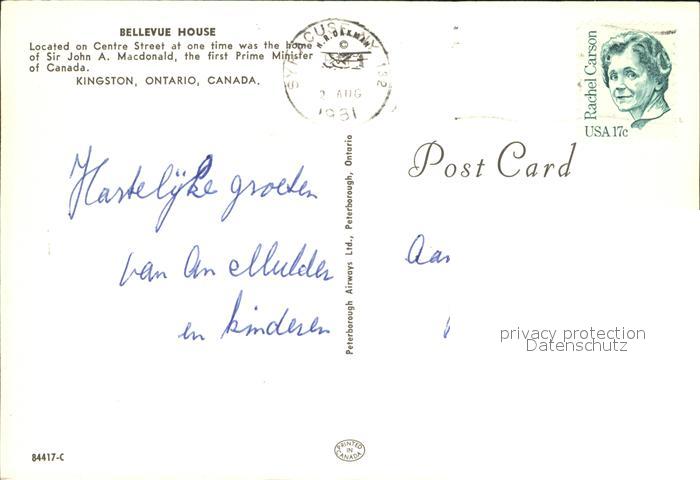 BELLEVUE HOUSE
Located on Centre Street at one time was the home
of Sir John A. Macdonald, the first Prime Minister
of Canada.
KINGSTON, ONTARIO, CANADA.
SYRACUSE NY 132
2 AUG
1981
Rachel Carson
USA 17c
Post Card
Hartelijke groeten
van An Mulder
en kinderen
Peterborough Airways Ltd., Peterborough, Ontario
Aan
privacy protection
Datenschutz
84417-C
PRINTED
IN
CANADA